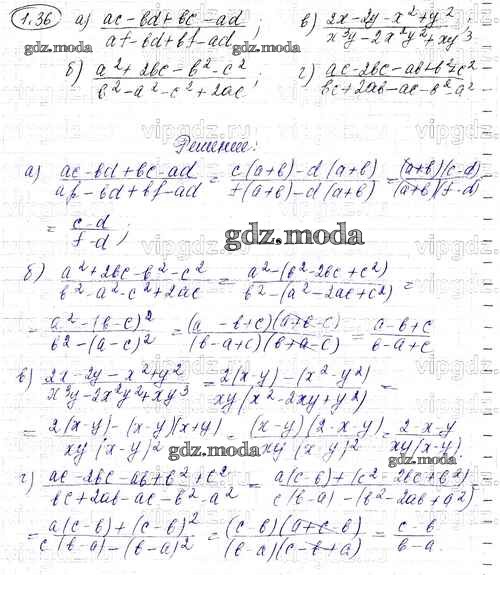 1.36 а) (ac-bd+bc-ad)/(af-bd+bf-ad); в) (2x-2y-x²+y²)/(x³y-2x²y²+xy³);
gdz.moda gdz.moda
б) (a²+2bc-b²-c²)/(b²-a²-c²+2ac); г) (ac-2bc-ab+b²+c²)/(bc+2ab-ac-b²-a²)
Решение:
а) (ac-bd+bc-ad)/(af-bd+bf-ad) = (c(a+b)-d(a+b))/(f(a+b)-d(a+b)) = ((a+b)(c-d))/((a+b)(f-d))
= (c-d)/(f-d);
gdz.moda
б) (a²+2bc-b²-c²)/(b²-a²-c²+2ac) = (a²-(b²-2bc+c²))/(b²-(a²-2ac+c²)) =
= (a²-(b-c)²)/(b²-(a-c)²) = ((a-b+c)(a+b-c))/((b-a+c)(b+a-c)) = (a-b+c)/(b-a+c)
в) (2x-2y-x²+y²)/(x³y-2x²y²+xy³) = (2(x-y)-(x²-y²))/(xy(x²-2xy+y²)) =
= (2(x-y)-(x-y)(x+y))/(xy(x-y)²) = ((x-y)(2-x-y))/(xy(x-y)²) = (2-x-y)/(xy(x-y))
gdz.moda gdz.moda
г) (ac-2bc-ab+b²+c²)/(bc+2ab-ac-b²-a²) = (a(c-b)+(c²-2bc+b²))/(c(b-a)-(b²-2ab+a²)) =
= (a(c-b)+(c-b)²)/(c(b-a)-(b-a)²) = ((c-b)(a+c-b))/((b-a)(c-b+a)) = (c-b)/(b-a).
gdz.moda